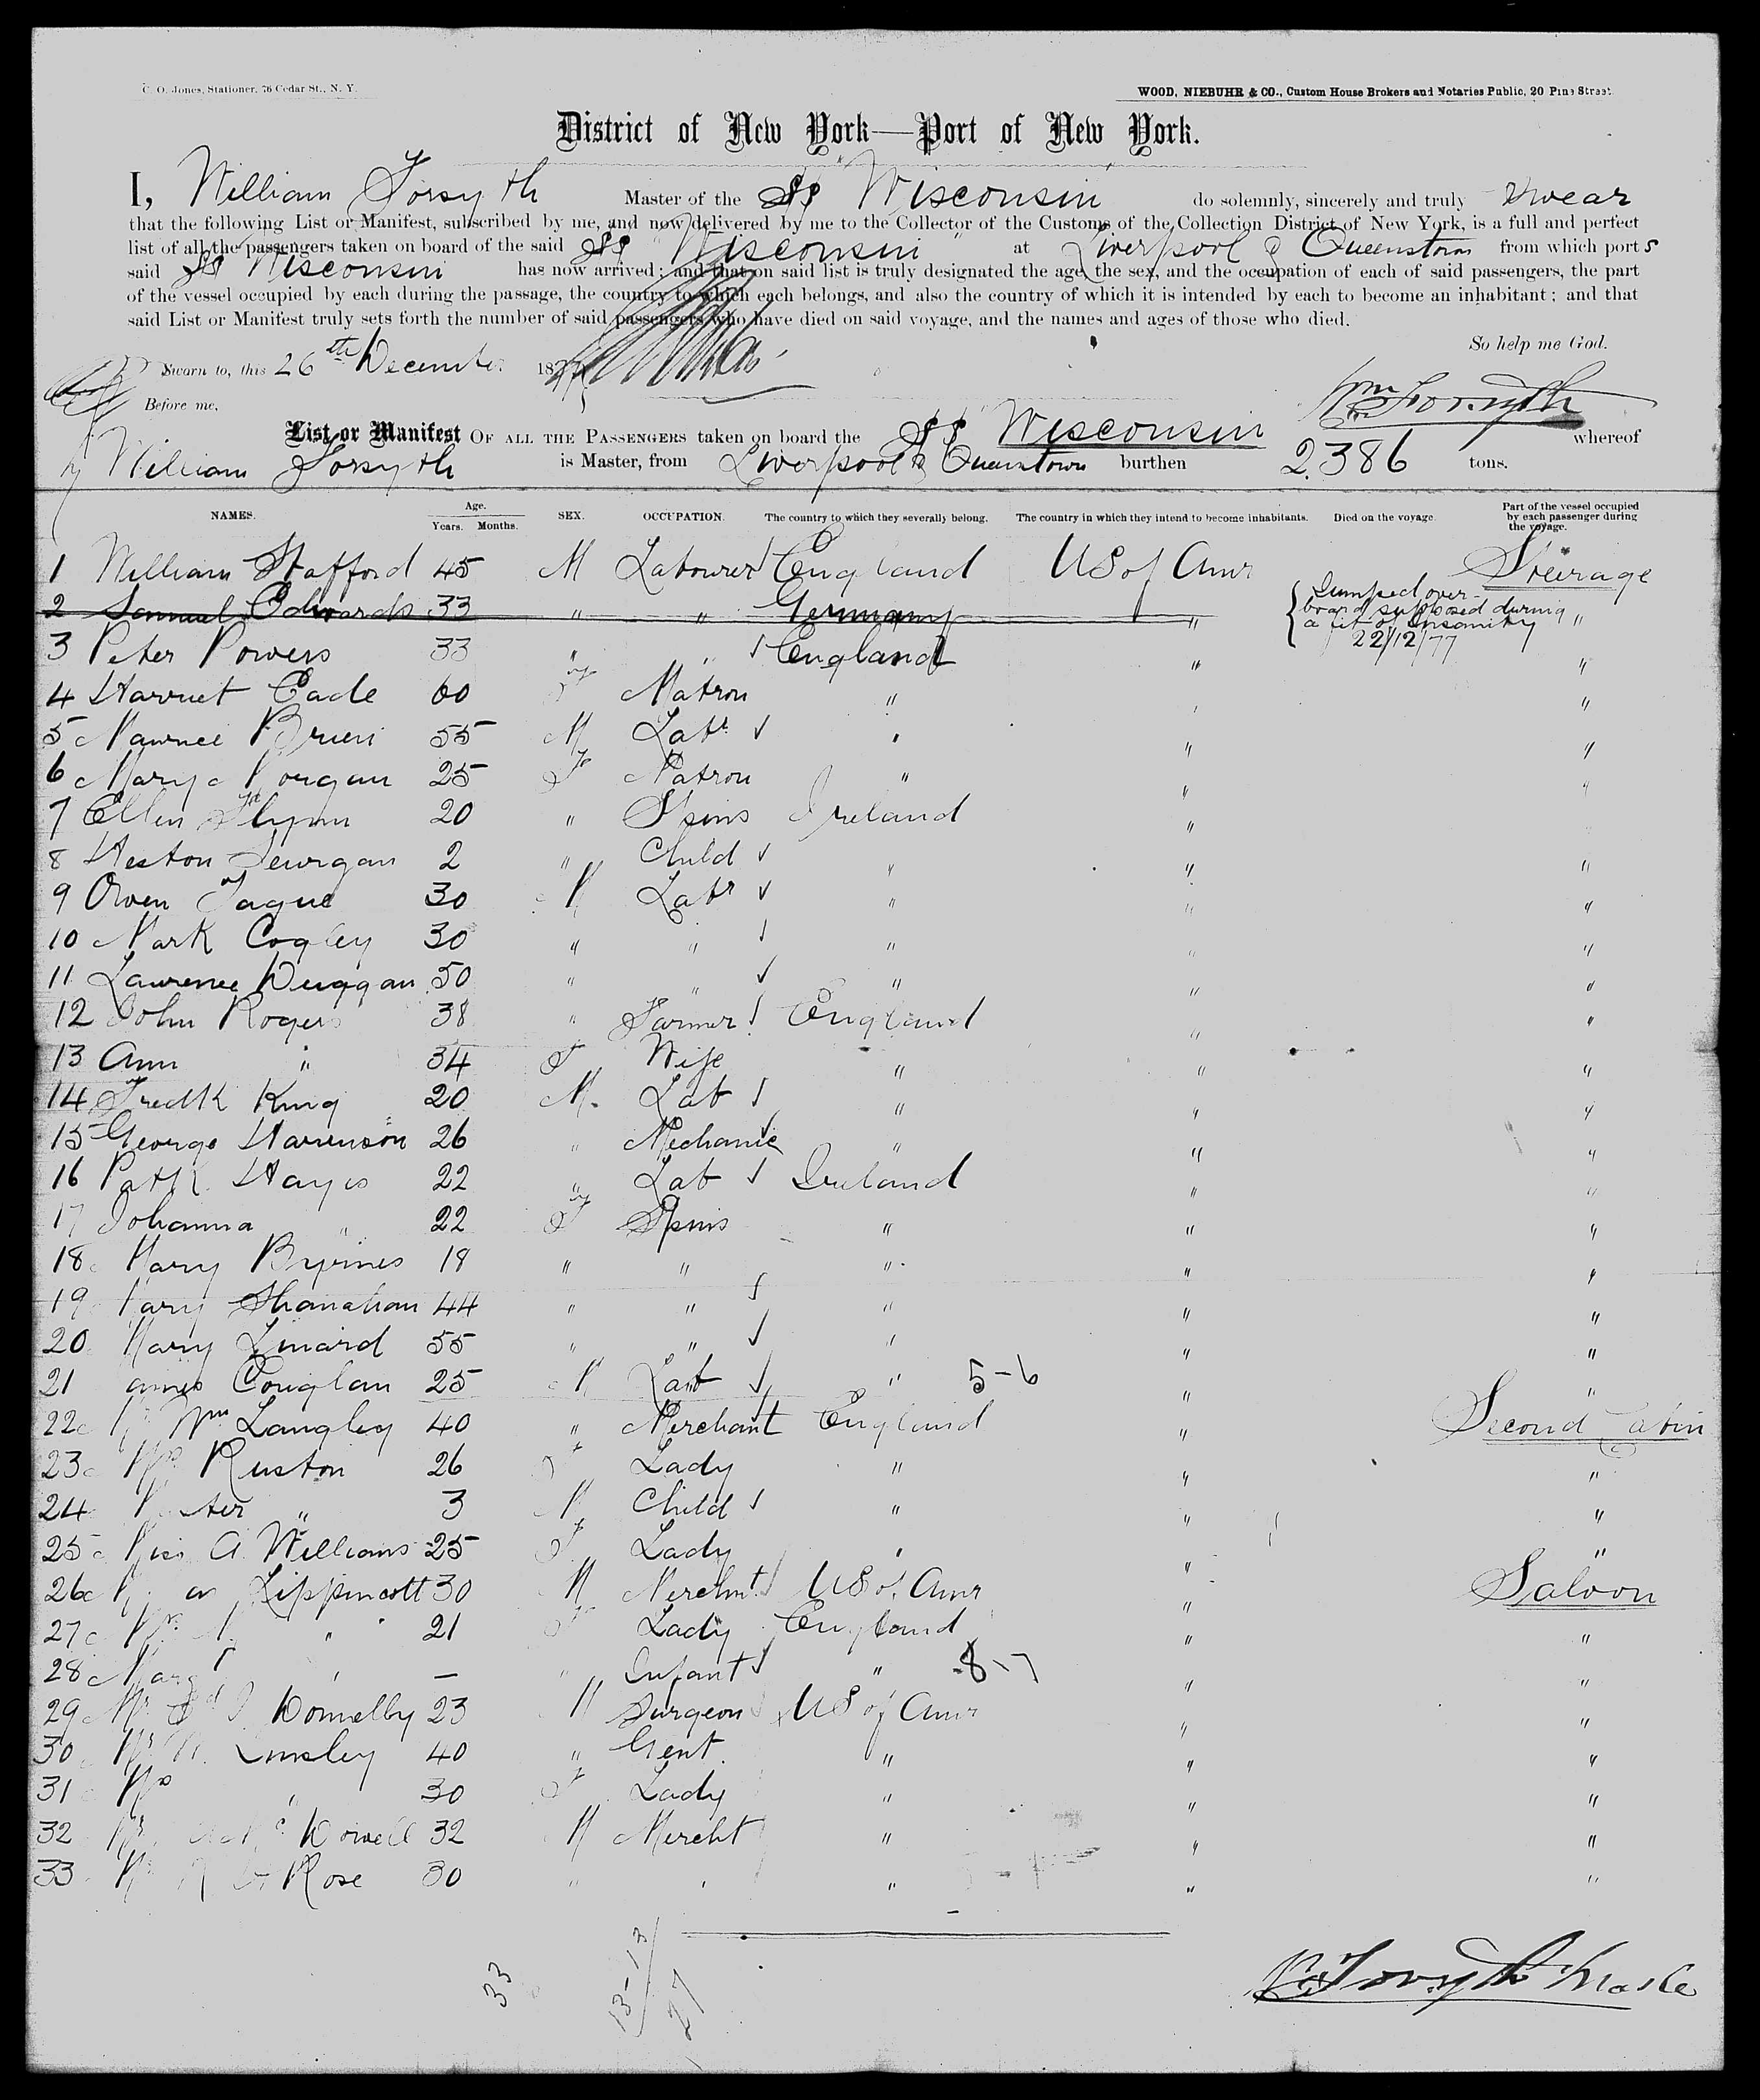 C. O. Jones, Stationer, 76 Cedar St., N. Y.
WOOD, NIEBUHR & CO., Custom House Brokers and Notaries Public, 20 Pine Street.
District of New York—Port of New York.
I, William Forsyth Master of the SS "Wisconsin" do solemnly, sincerely and truly swear
that the following List or Manifest, subscribed by me, and now delivered by me to the Collector of the Customs of the Collection District of New York, is a full and perfect
list of all the passengers taken on board of the said SS "Wisconsin" at Liverpool & Queenstown from which ports
said SS Wisconsin has now arrived; and that on said list is truly designated the age, the sex, and the occupation of each of said passengers, the part
of the vessel occupied by each during the passage, the country to which each belongs, and also the country of which it is intended by each to become an inhabitant; and that
said List or Manifest truly sets forth the number of said passengers who have died on said voyage, and the names and ages of those who died.
So help me God.
Sworn to, this 26th December 187
Wm Forsyth
Before me,
List or Manifest OF ALL THE PASSENGERS taken on board the SS Wisconsin whereof
William Forsyth is Master, from Liverpool & Queenstown burthen 2386 tons.
NAMES. Age. Years. Months. SEX. OCCUPATION. The country to which they severally belong. The country in which they intend to become inhabitants. Died on the voyage. Part of the vessel occupied by each passenger during the voyage.
1 William Stafford 45 M Labourer England US of Amr Steerage
2 Samuel Edwards 33 " " Germany " Jumped over-board supposed during a fit of Insanity 22/12/77 "
3 Peter Powers 33 " " England " "
4 Harriet Eade 60 F Matron " "
5 Brien 55 M Labr " " "
6 Mary 25 F Matron " "
7 Ellen Flynn 20 " Spins Ireland "
8 2 " Child " " "
9 Owen Tague 30 M Labr " " "
10 Mark Cogley 30 " " " " "
11 Lawrence Duggan 50 " " " " "
12 John Rogers 38 " Farmer England " "
13 Ann " 34 F Wife " " "
14 Fredk King 20 M. Lab " " "
15 George Harrinson 26 " Mechanic " " "
16 Patk Hayes 22 " Lab Ireland " "
17 Johanna " 22 F Spins " " "
18 Mary Byrnes 18 " " " " "
19 Mary Shanahan 44 " " " " "
20 Mary Linard 55 " " " " "
21 James Couglan 25 M Lab " 5-6 " "
22 Wm Langley 40 " Merchant England " Second Cabin
23 Mrs Ruston 26 F Lady " " "
24 Master " 3 M Child " " "
25 Miss A Williams 25 F Lady " " "
26 Lippincott 30 M Mercht US of Amr " Saloon
27 Mrs " 21 F Lady England " "
28 Margt " — " Infant " 8-7 " "
29 Mr Donnelly 23 M Surgeon US of Amr " "
30 Mr 40 " Gent. " " "
31 Mrs " 30 F Lady " " "
32 Mr McDowell 32 M Mercht " " "
33 Mr Rose 30 " " " " "
33
27
Wm Forsyth Master